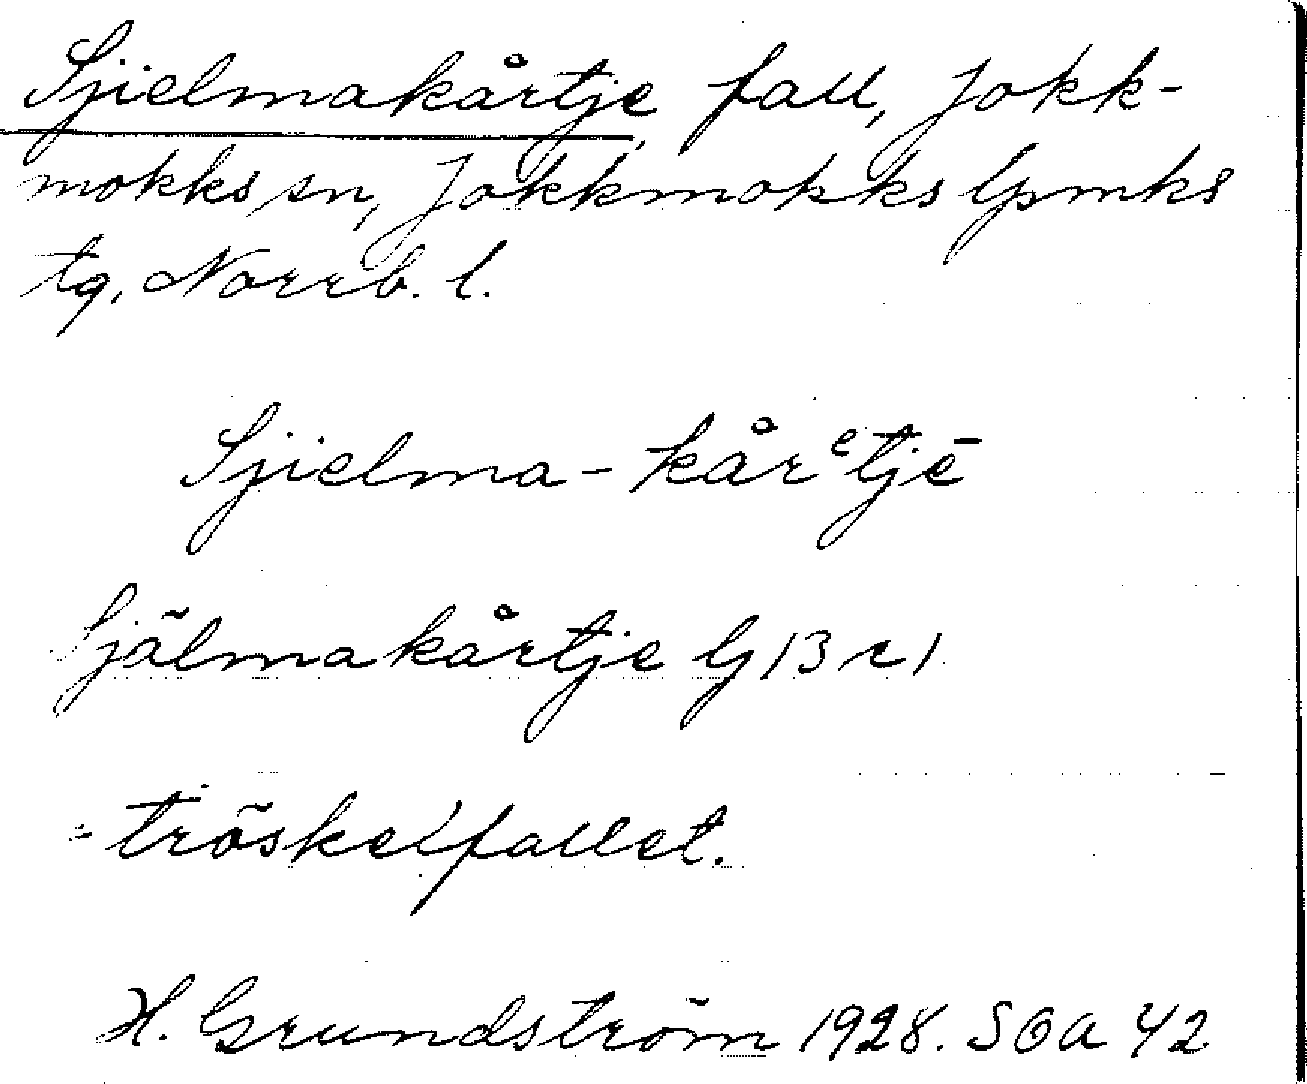 Sjielmakårtje, fall, Jokk-
mokks sn, Jokkmokks lpmks
tg, Norrb. l.
Sjielma-kårᵉtjē
Själmakårtje lj 13 r 1
= tröskelfallet.
H. Grundström 1928. SOA 42